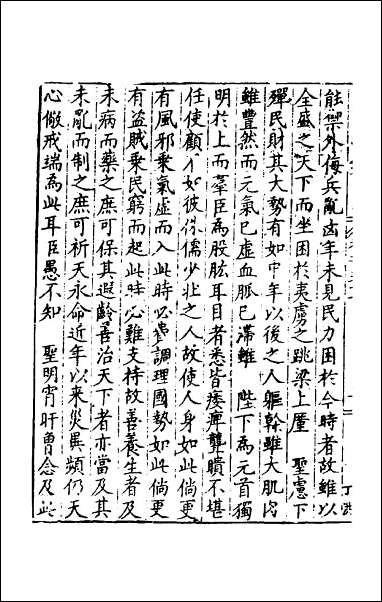 能禦外侮兵亂凶年未見民力困於今時者故雖以
全盛之天下而坐困於夷虜之跳梁上廑 聖慮下
殫民財其大勢有如中年以後之人軀幹雖大肌肉
雖豐然而元氣已虛血脉已滯雖 陛下為元首獨
明於上而羣臣為股肱耳目者悉皆痿痺聾瞶不堪
任使顧不如彼侏儒少壯之人故使人身如此倘更
有風邪乘氣虛而入此時必費調理國勢如此倘更
有盜賊乘民窮而起此時必難支持故善養生者及
未病而藥之庶可保其遐齡善治天下者亦當及其
未亂而制之庶可祈天永命近年以來災異頻仍天
心儆戒端為此耳臣愚不知 聖明宵旰曽念及此